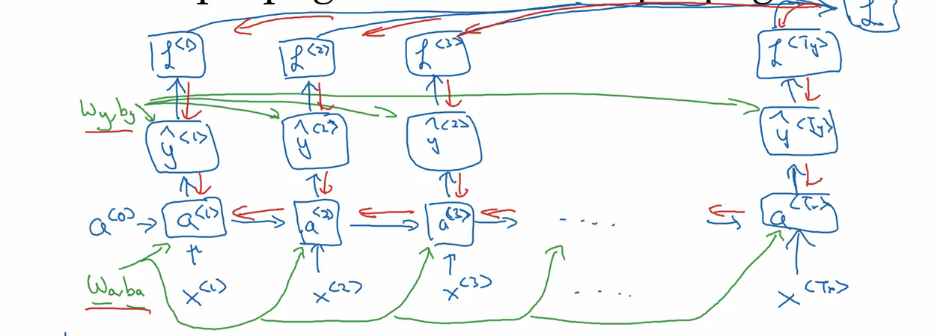 L
L<1> L<2> L<3> L<Ty>
Wy,by
ŷ<1> ŷ<2> ŷ<2> ŷ<Ty>
a<0> a<1> a<2> a<3> .... a<Tx>
Wa,ba
x<1> x<2> x<3> .... x<Tx>